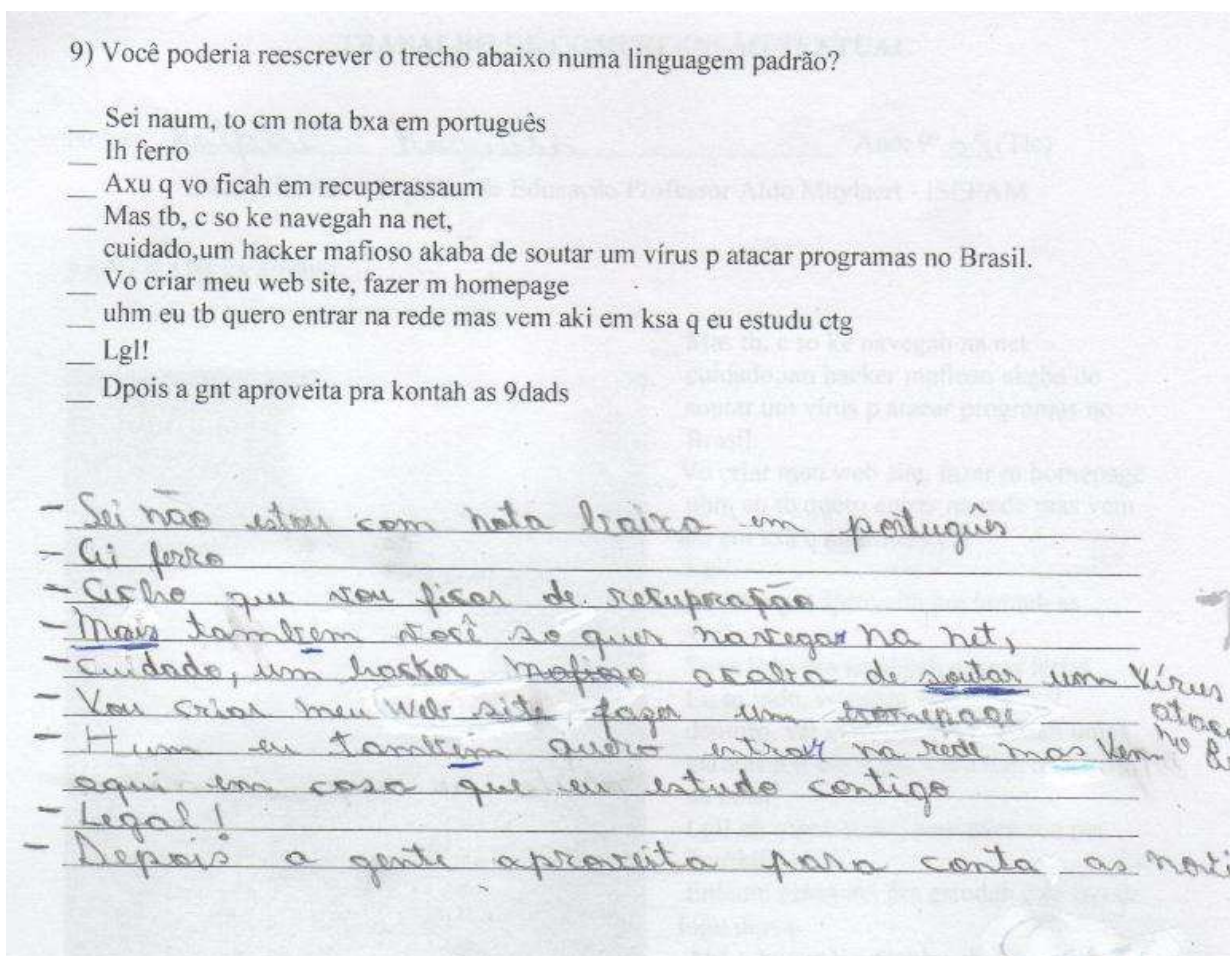 9) Você poderia reescrever o trecho abaixo numa linguagem padrão?
__ Sei naum, to cm nota bxa em português
__ Ih ferro
__ Axu q vo ficah em recuperassaum
__ Mas tb, c so ke navegah na net,
cuidado,um hacker mafioso akaba de soutar um vírus p atacar programas no Brasil.
__ Vo criar meu web site, fazer m homepage
__ uhm eu tb quero entrar na rede mas vem aki em ksa q eu estudu ctg
__ Lgl!
__ Dpois a gnt aproveita pra kontah as 9dads
- Sei não estou com nota baixa em portugues
- Ai ferro
- Acho que vou ficar de recuperação
- Mais tambem você so quer navegar na net,
- cuidado, um hacker mafioso acaba de soutar um vírus
- Vou criar meu Web site, fazer um homepage
- Hum eu tambem quero entrar na rede mas vem
aqui em casa que eu estudo contigo
- Legal!
- Depois a gente aproveita para conta as